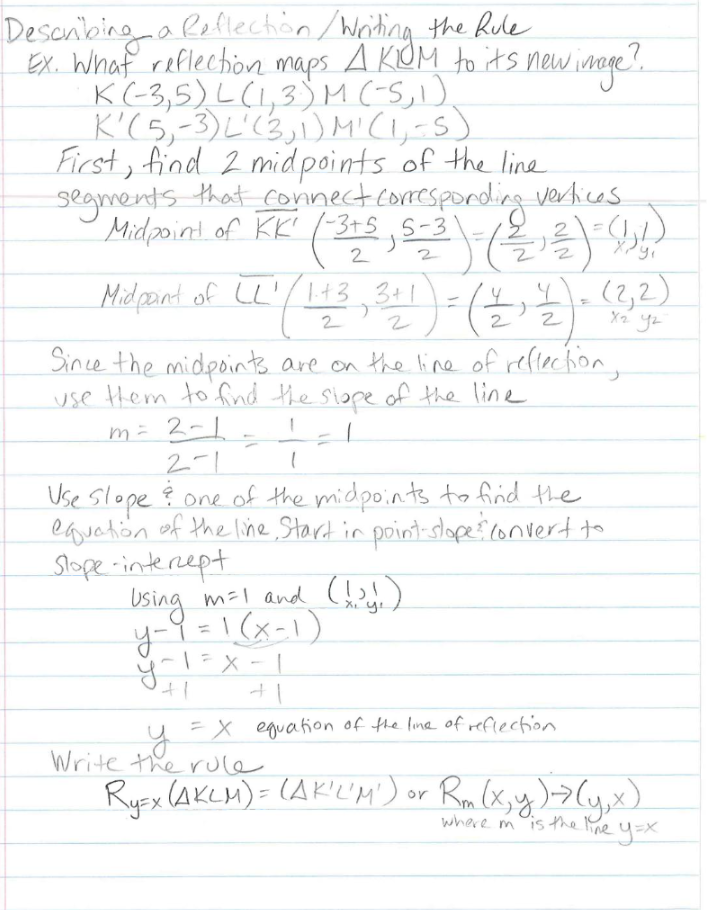 Describing a Reflection/Writing the Rule
Ex. What reflection maps Δ KLM to its new image?
K(-3,5) L(1,3) M(-5,1)
K'(5,-3) L'(3,1) M'(1,-5)
First, find 2 midpoints of the line
segments that connect corresponding vertices
Midpoint of KK' (-3+5/2, 5-3/2) = (2/2, 2/2) = (1,1) x₁ y₁
Midpoint of LL' (1+3/2, 3+1/2) = (4/2, 4/2) = (2,2) x₂ y₂
Since the midpoints are on the line of reflection,
use them to find the slope of the line
m = 2-1/2-1 = 1/1 = 1
Use slope & one of the midpoints to find the
equation of the line. Start in point-slope & convert to
slope-intercept
Using m=1 and (1,1) x₁ y₁
y-1 = 1(x-1)
y-1 = x-1
+1 +1
y = x equation of the line of reflection
Write the rule
Ry=x (ΔKLM) = (ΔK'L'M') or Rm (x,y)→(y,x)
where m is the line y=x